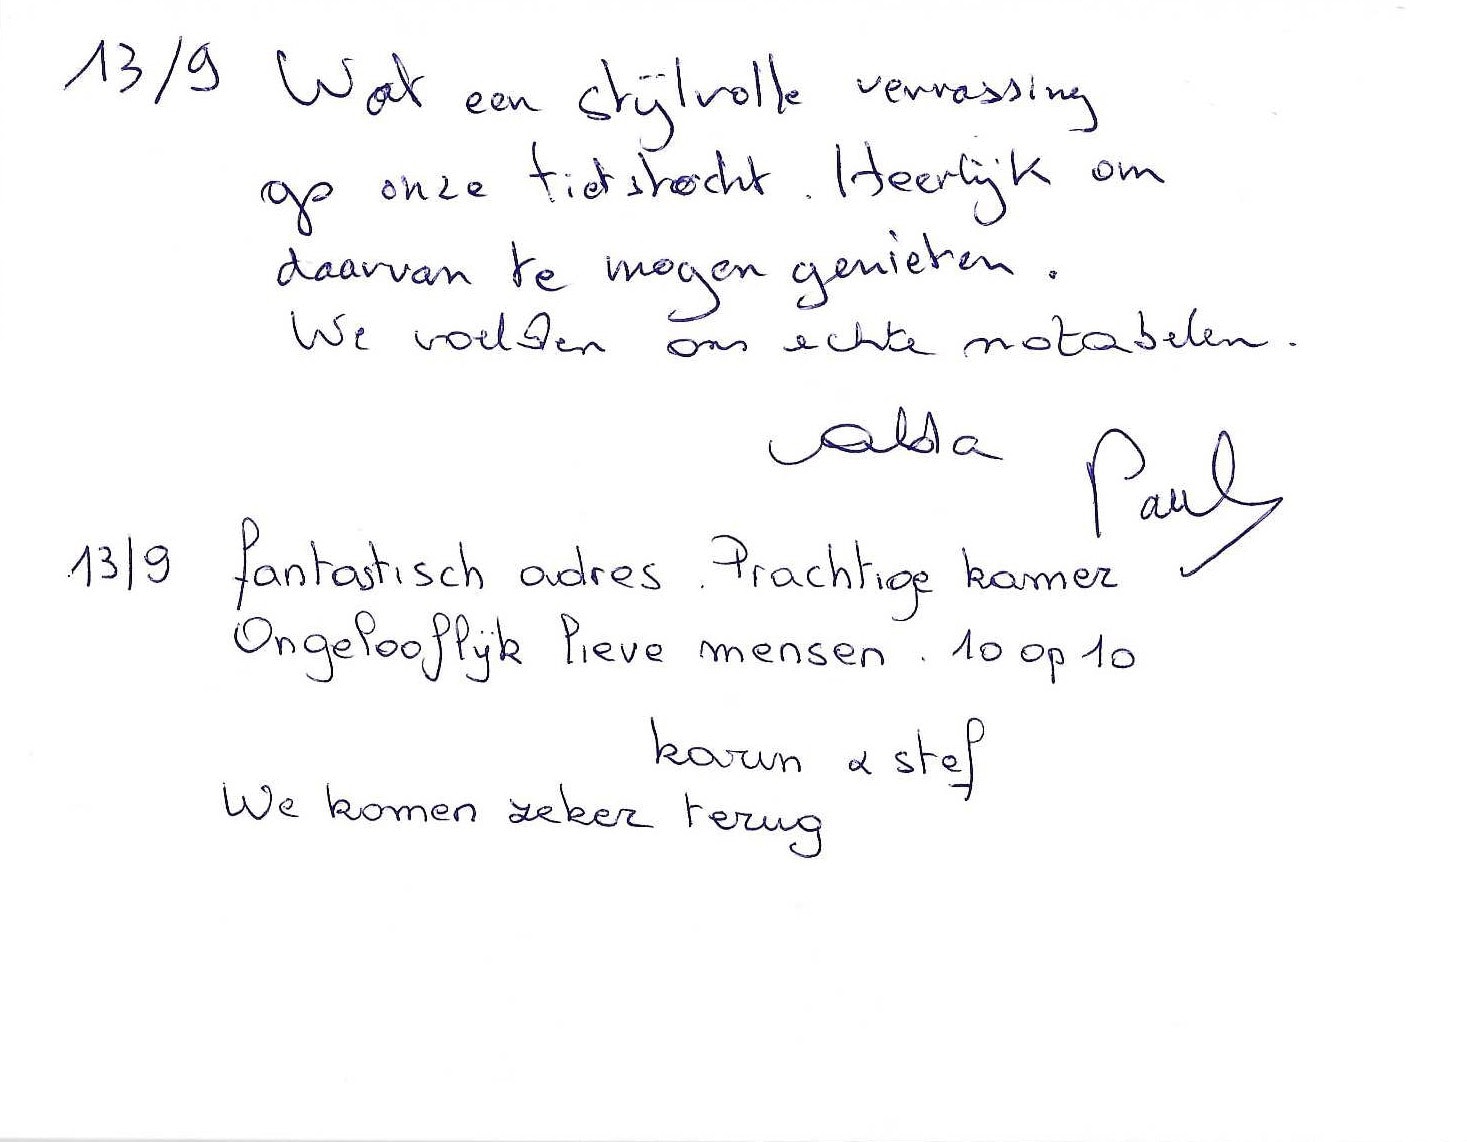 13/9 Wat een stijlvolle verrassing
op onze fietstocht. Heerlijk om
daarvan te mogen genieten.
We voelden ons echte notabelen.
alda
Paul
13/9 fantastisch adres. Prachtige kamer
Ongelooflijk lieve mensen. 10 op 10
karin & stef
We komen zeker terug